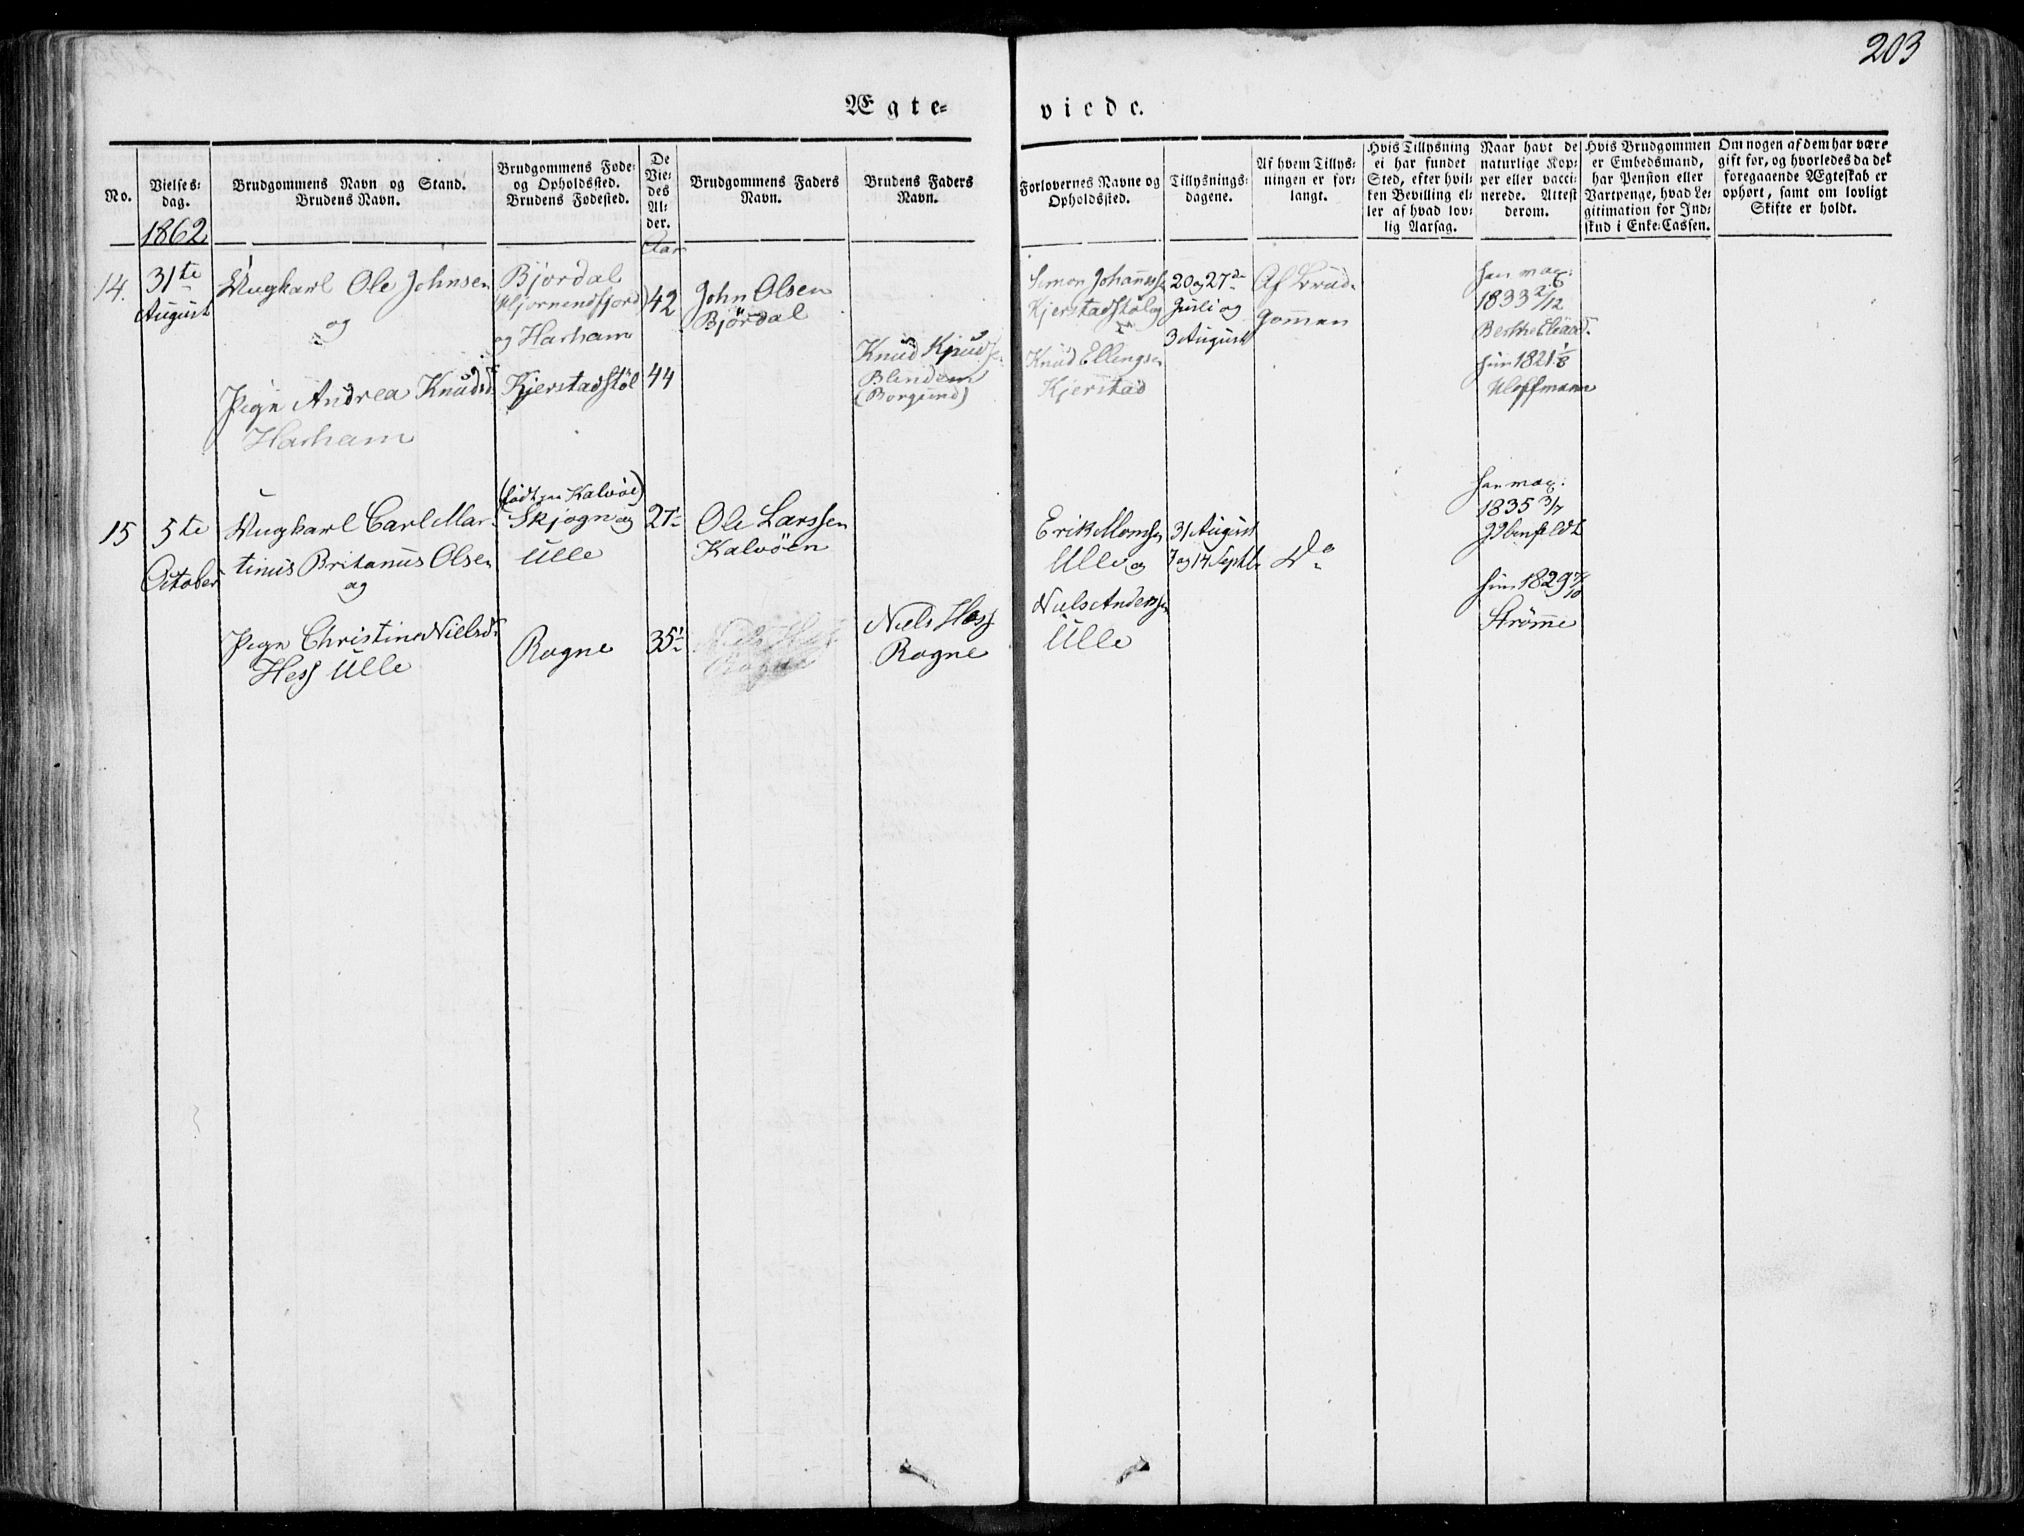 203
Ægte- viede.
No.
Vielses-
dag.
1862
Brudgommens Navn og Stand.
Brudens Navn.
Brudgommens Føde-
og Opholdssted.
Brudens Fødested.
De
Vie-
des
Al-
der.
Aar
Brudgommens Faders
Navn.
Brudens Faders
Navn.
Forlovernes Navne og
Opholdssted.
Tillysnings-
dagene.
Af hvem Tillys-
ningen er for-
langt.
Hvis Tillysning
ei har fundet
Sted, efter hvil-
ken Bevilling el-
ler af hvad lov-
lig Aarsag.
Naar havt de
naturlige Kop-
per eller vacci-
nerede. Attest
derom.
Hvis Brudgommen
er Embedsmand,
har Pension eller
Vartpenge, hvad Le-
gitimation for Ind-
skud i Enke-Cassen.
Om nogen af dem har være
gift for, og hvorledes da det
foregaaende Ægteskab er
ophørt, samt om lovligt
Skifte er holdt.
14.
31te
August
Ungkarl Ole Johnsen
og
Pige Andrea Knudsd
Harham
Bjørdal
(Hjørnendfjord)
og Harham
Kjerstadstøl
42
44
John Olsen
Bjørdal
Knud Knuds
Blindem
(Borgund)
Simon Johanness
Kjerstadstøl og
Knud Ellingsen
Kjerstad
20 og 27de
Juli og
3 August
Af Brud-
gommen
han vac:
1833 2/12
hun 1821 1/8
Hoffmann
15
5te
October
Ungkarl Carl Mar-
tinus Britanus Olsen
og
Pige Christine Nielsd
Hess Ulle
(født paa Kalvøe)
Skjogn og
Ulle
Rogne
27
35
Ole Larssen
Kalvøen
Niels Hess
Rogne
Niels Hess
Rogne
Erik Monssen
Ulle og
Niels Anderssen
Ulle
31 August
7 og 14 Septb
Do
han vac:
1835 3/7
Ibenfeldt
hun 1829 7/10
Strømme